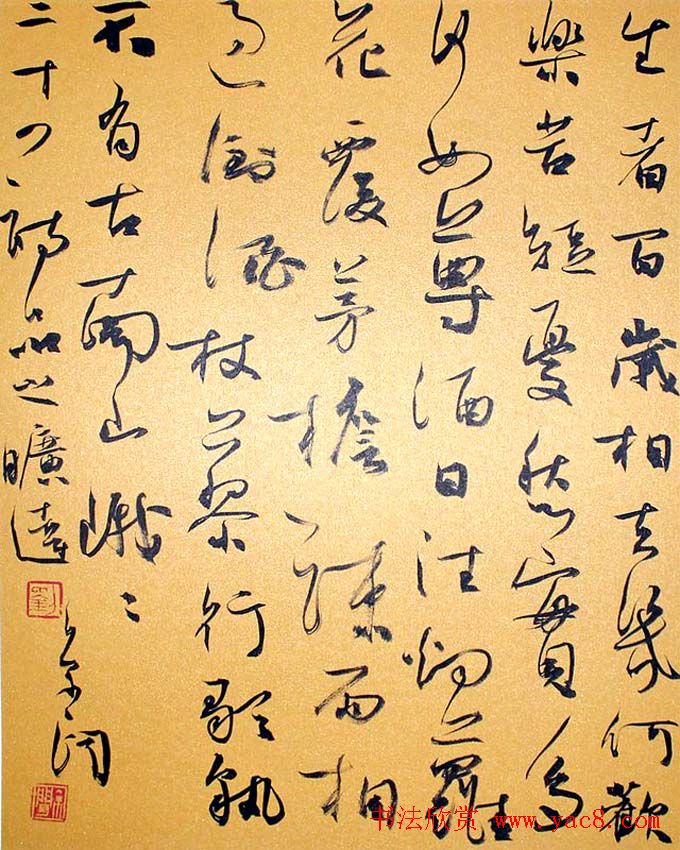 生者百歲相去幾何歡
樂苦短憂愁實多
何如尊酒日往烟蘿
花覆茅檐疎雨相
過倒酒杖藜行歌孰
不有古南山峨々
二十四詩品之曠達
书法欣赏 www.yac8.com